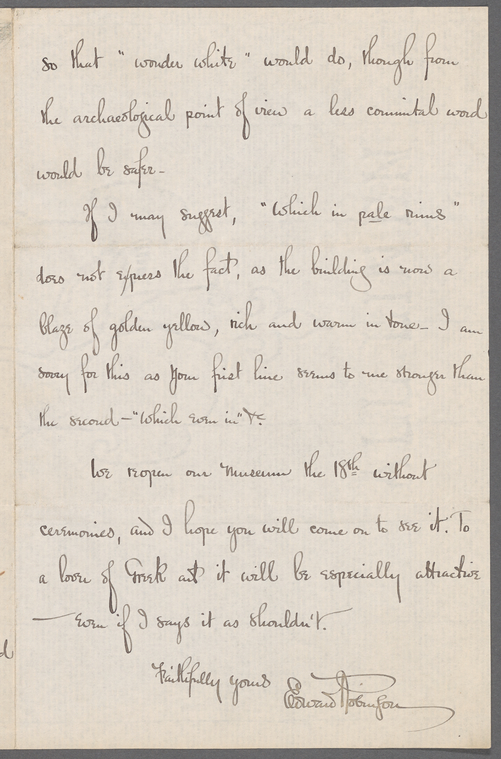 so that "wonder white" would do, though from
the archaeological point of view a less committal word
would be safer -
If I may suggest, "Which in pale ruins"
does not express the fact, as the building is now a
blaze of golden yellow, rich and warm in tone - I am
sorry for this as your first line seems to me stronger than
the second - "Which even in" &c.
We reopen our Museum the 18th without
ceremonies, and I hope you will come on to see it. To
a lover of Greek art it will be especially attractive
- even if I says it as shouldn't.
Faithfully yours
Edward Robinson
d